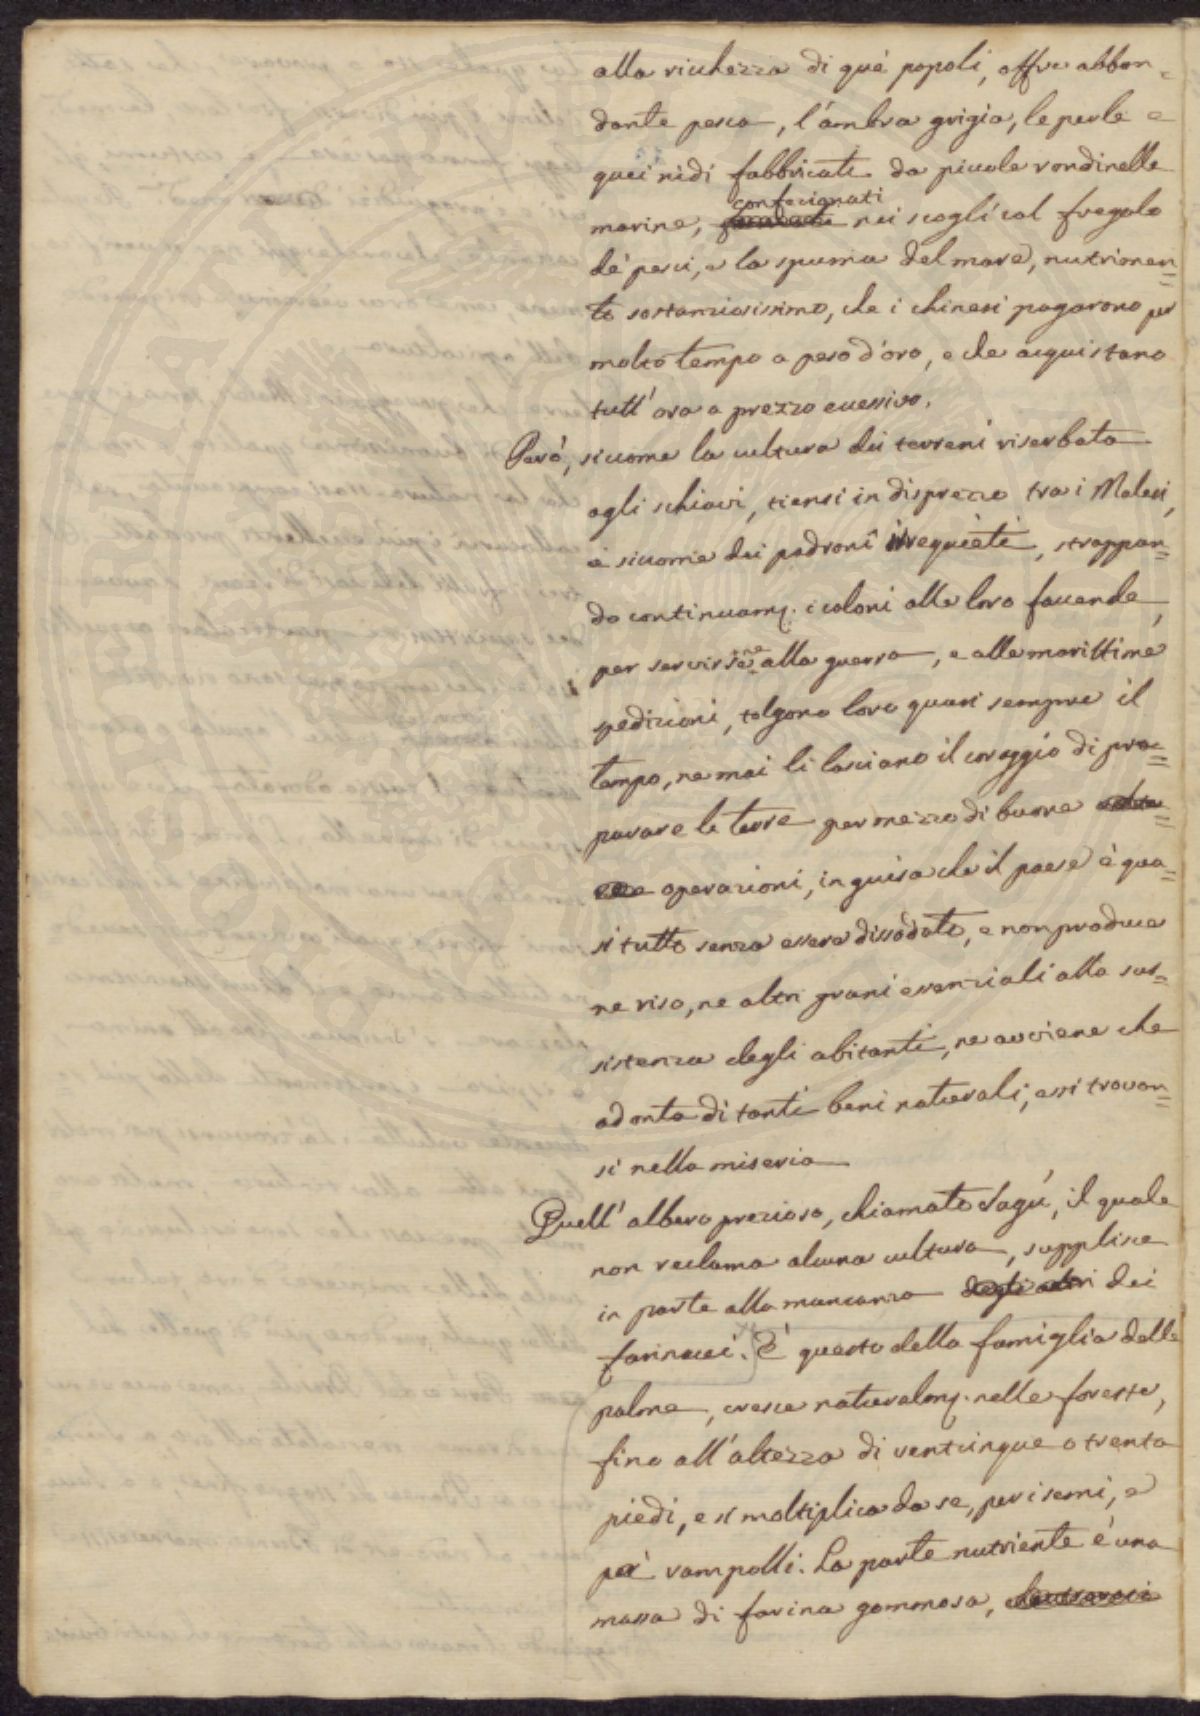 alla richezza di què popoli, offre abbon=
dante pesca, l'ambra grigia, le perle e
quei nidi fabbricati da piccole rondinelle
marine, confezionati nei scogli col fregolo
de' pesci, e la spuma del mare, nutrimen=
to sostanziosissimo, che i chinesi pagarono per
molto tempo a peso d'oro, e che acquistano
tutt'ora a prezzo eccessivo.
Però, siccome la cultura dei terreni riserbata
agli schiavi, tiensi in disprezzo tra i Malesi,
e siccome dei padroni irrequieti, strappan=
do continuam. i coloni alle loro faccende,
per servirsene alla guerra, e alle marittime
spedizioni, tolgono loro quasi sempre il
tempo, ne mai li lasciano il coraggio di pre=
parare le terre per mezzo di buone
operazioni, in guisa che il paese è qua=
si tutto senza essere dissodato, e non produce
ne riso, ne altri grani essenziali alla sus=
sistenza degli abitanti, ne avviene che
ad onta di tanti beni naturali, essi trovan=
si nella miseria
Quell'albero prezioso, chiamato Sagù, il quale
non reclama alcuna cultura, supplisce
in parte alla mancanza degli altri dei
farinacei. È questo della famiglia delle
palme, cresce naturalm. nelle foreste,
fino all'altezza di venticinque o trenta
piedi, e si moltiplica da se, per i semi, e
pei rampolli. La parte nutriente è una
massa di farina gommosa,